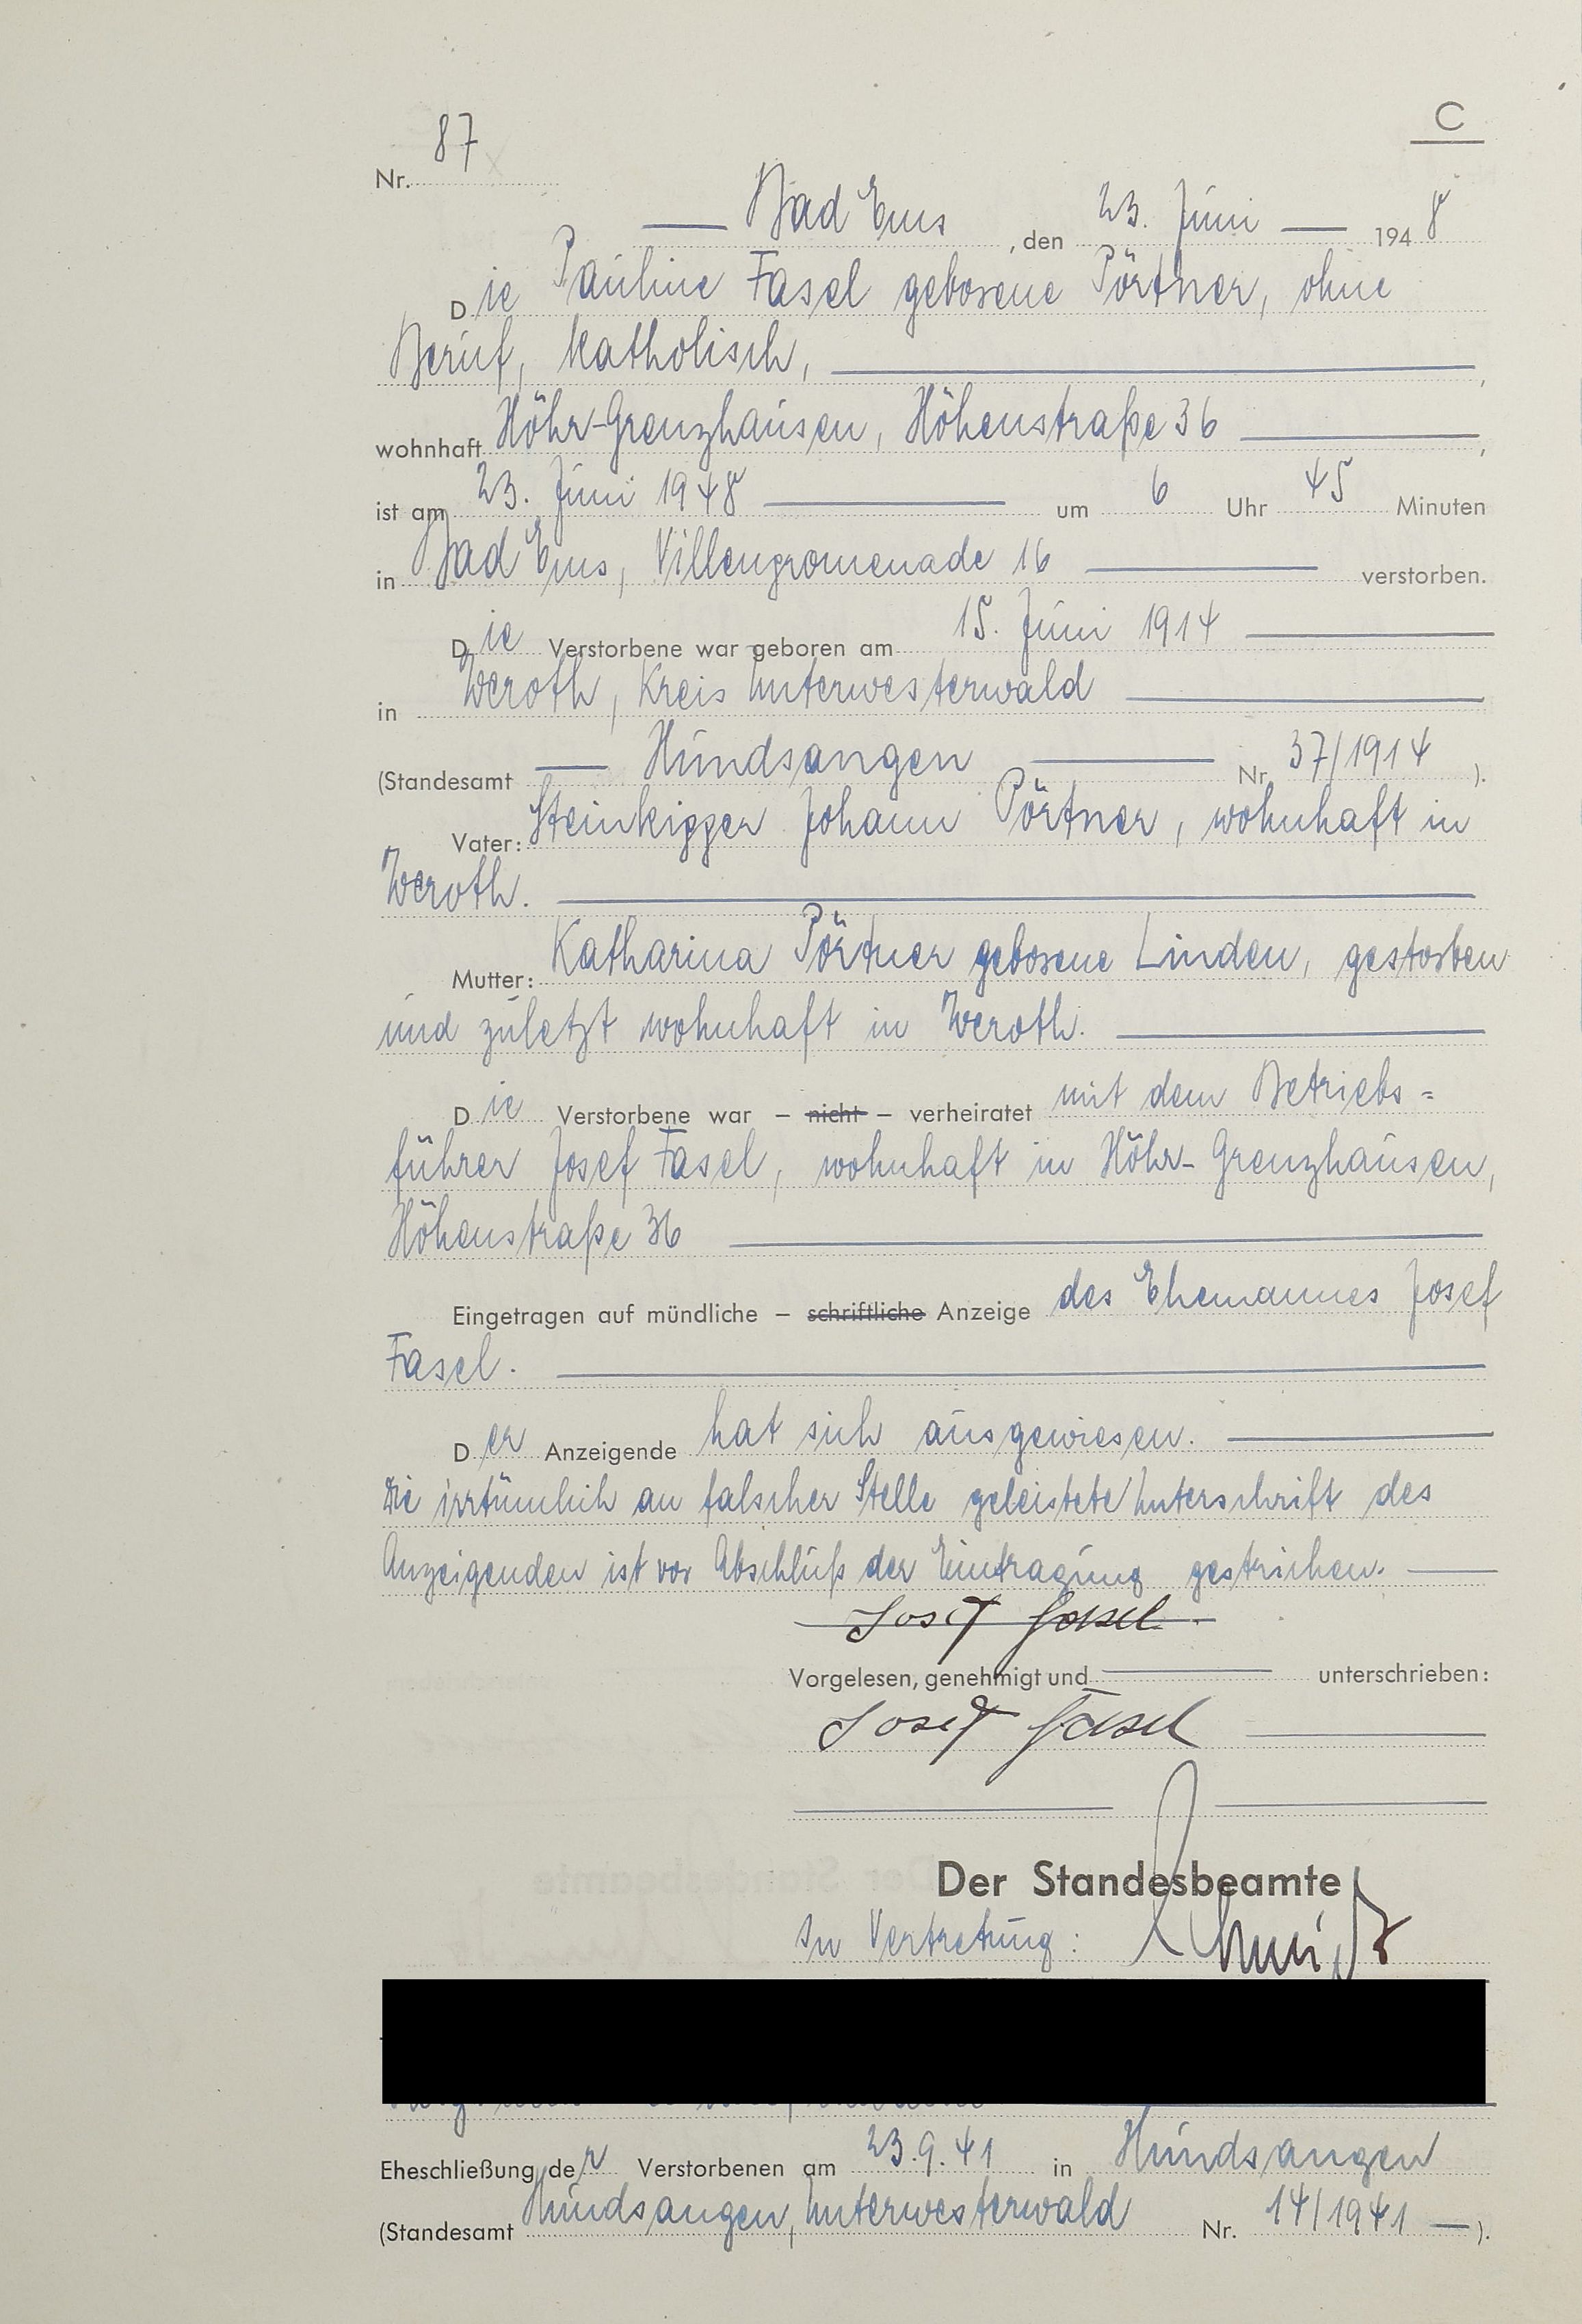 C
Nr. 87
Bad Ems, den 23. Juni 1948
Die Pauline Fasel geborene Pörtner, ohne
Beruf, katholisch,
wohnhaft Höhr-Grenzhausen, Höhenstraße 36,
ist am 23. Juni 1948 um 6 Uhr 45 Minuten
in Bad Ems, Villenpromenade 16 verstorben.
Die Verstorbene war geboren am 15. Juni 1914
in Weroth, Kreis Unterwesterwald
(Standesamt Hundsangen Nr. 37/1914).
Vater: Steinkipper Johann Pörtner, wohnhaft in
Weroth.
Mutter: Katharina Pörtner geborene Linden, gestorben
und zuletzt wohnhaft in Weroth.
Die Verstorbene war – nicht – verheiratet mit dem Betriebs=
führer Josef Fasel, wohnhaft in Höhr-Grenzhausen,
Höhenstraße 36
Eingetragen auf mündliche – schriftliche Anzeige des Ehemannes Josef
Fasel.
Der Anzeigende hat sich ausgewiesen.
Die irrtümlich an falscher Stelle geleistete Unterschrift des
Anzeigenden ist vor Abschluß der Eintragung gestrichen.
Josef Fasel
Vorgelesen, genehmigt und unterschrieben:
Josef Fasel
Der Standesbeamte
In Vertretung: Schmidt
Eheschließung der Verstorbenen am 23.9.41 in Hundsangen
(Standesamt Hundsangen, Unterwesterwald Nr. 14/1941).